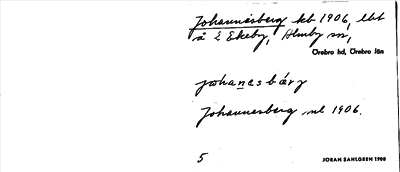 Johannesberg kb 1906, lht
å E Ekeby, Almby sn,
Örebro hd, Örebro län
johanesbárj
Johannesberg ml 1906.
5
JÖRAN SAHLGREN 1906